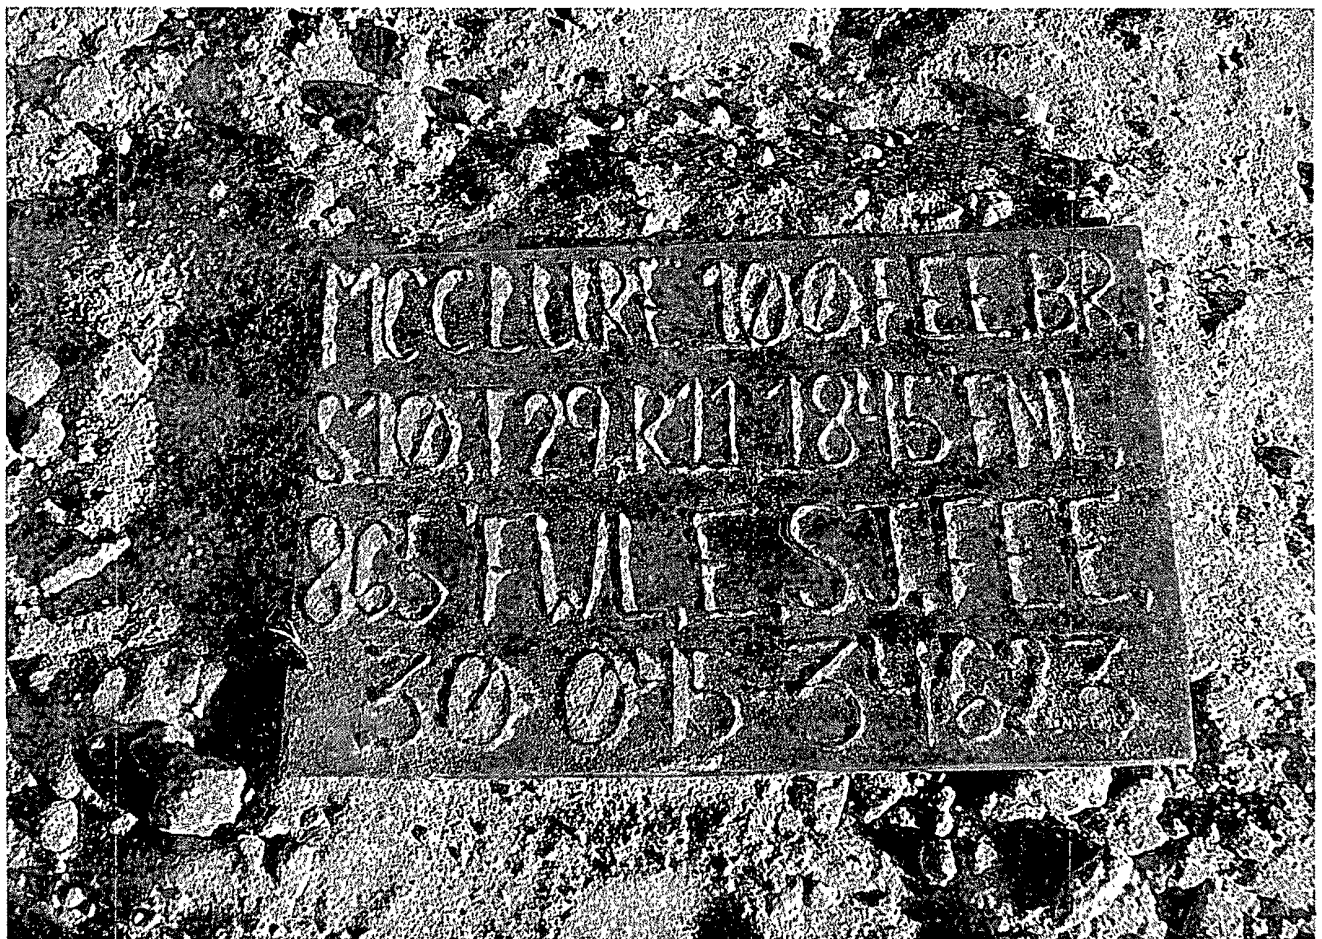 MCCLURE 10Ø,FEE,BR,
S1Ø,T29,R11 1845'FNL,
865'FWL,E,SJ,FEE,
30 045-34623